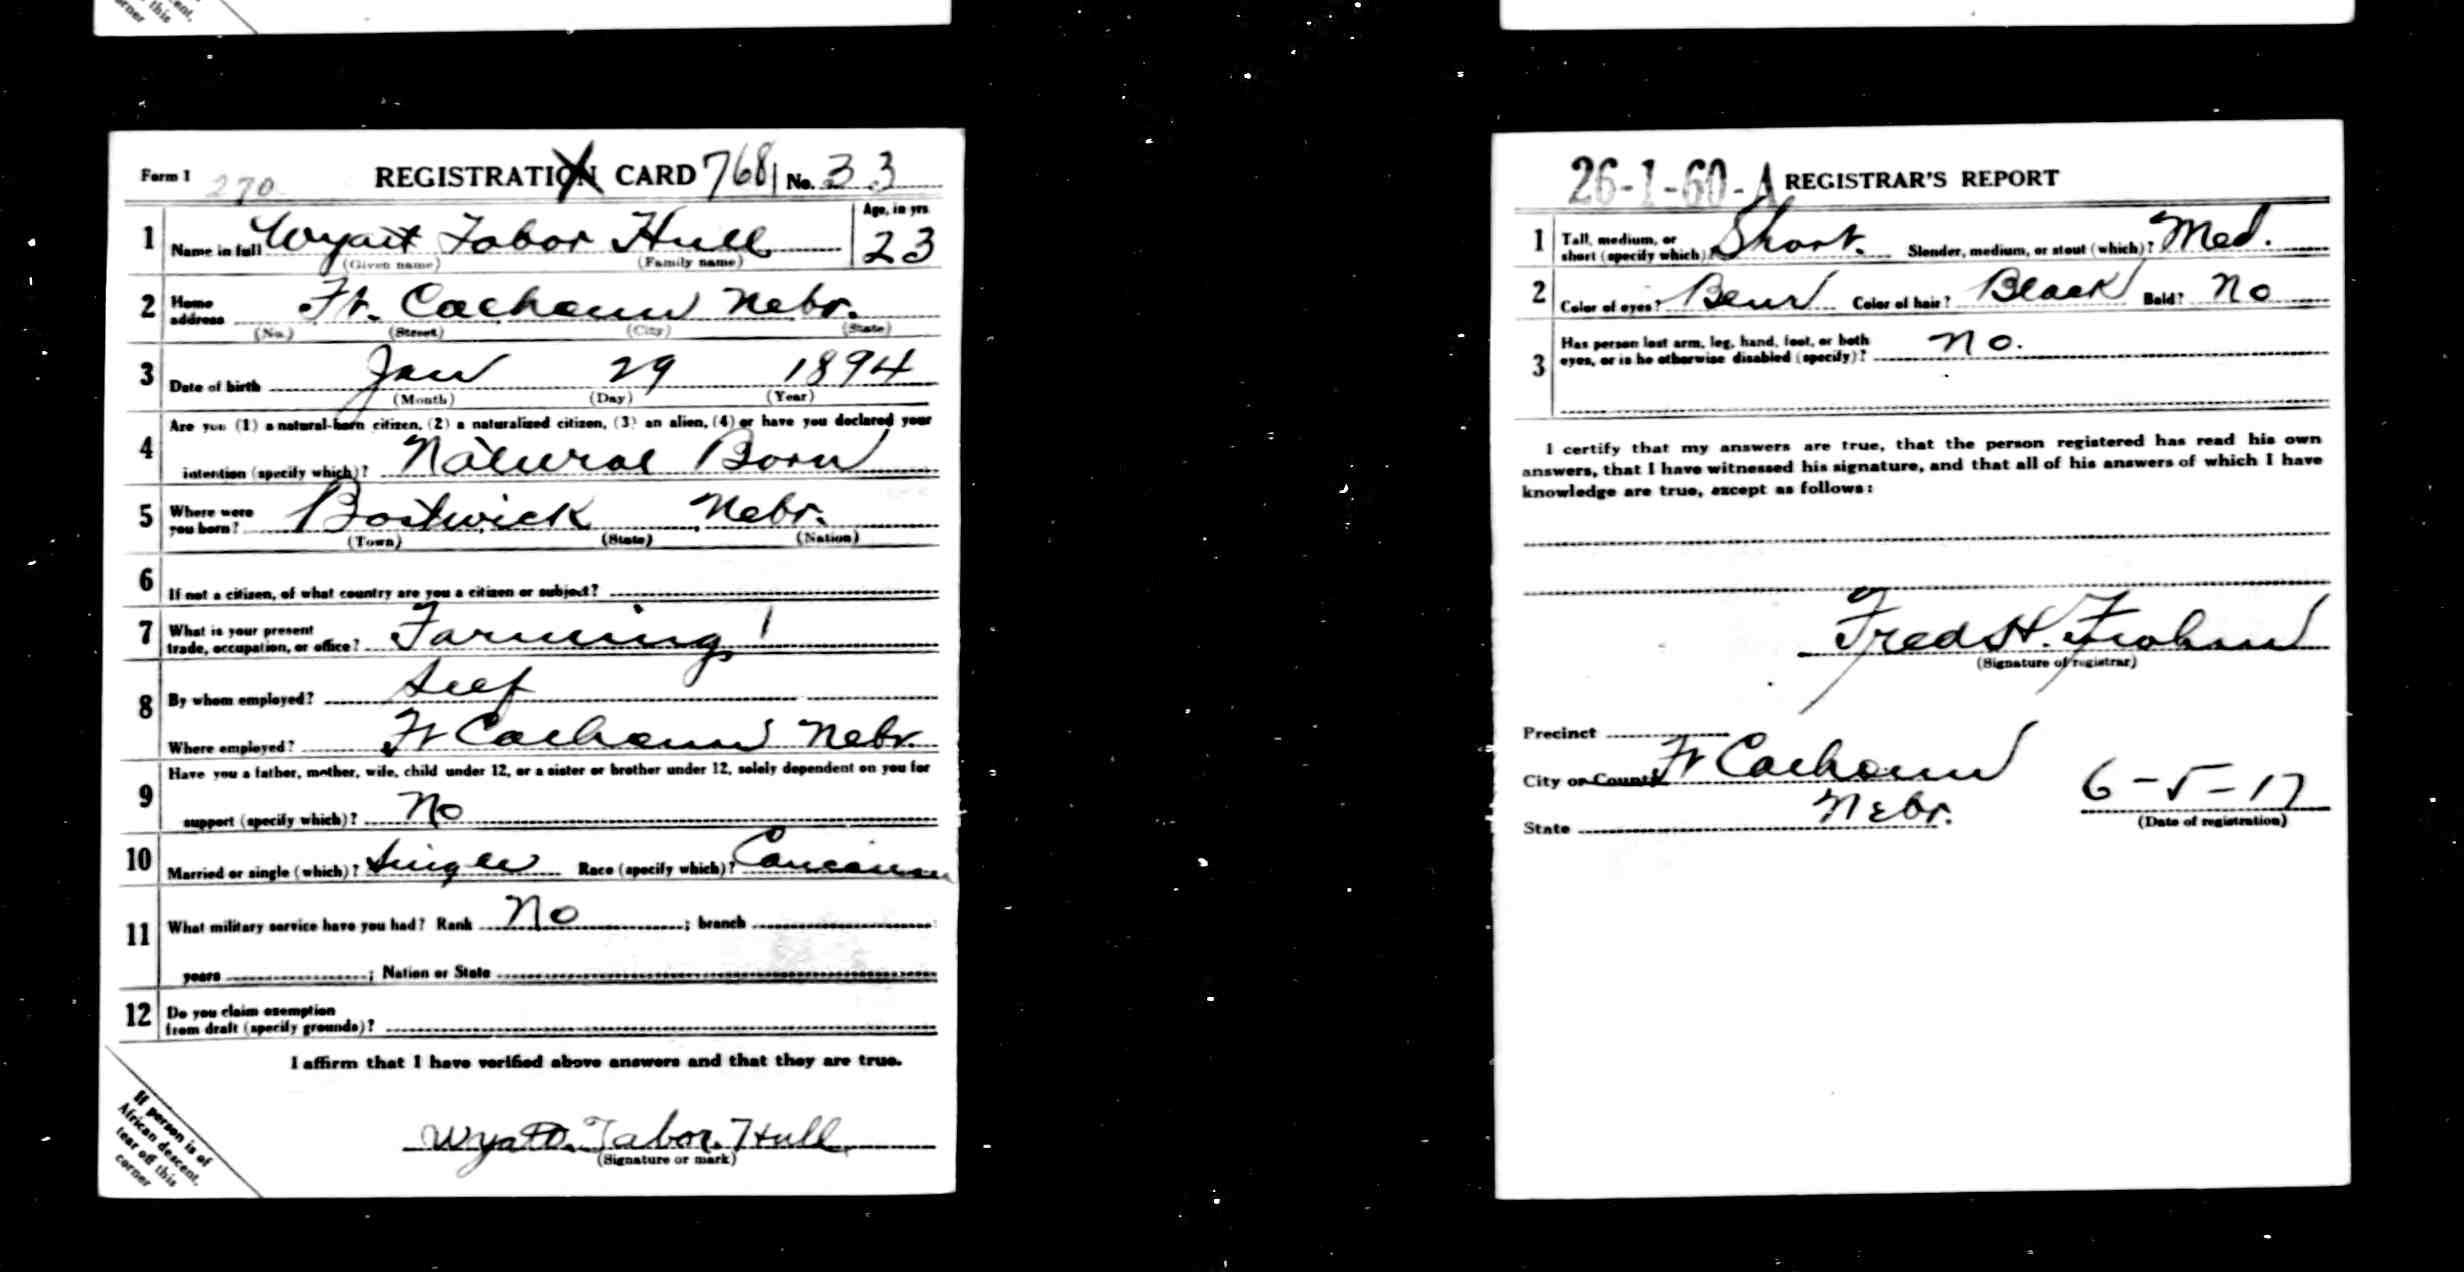 this
corner
Form 1 270 REGISTRATION CARD 768 No. 33
1 Name in full Wyatt Tabor Hull Age, in yrs 23
(Given name) (Family name)
2 Home address Ft. Calhoun Nebr.
(No.) (Street) (City) (State)
3 Date of birth Jan 29 1894
(Month) (Day) (Year)
4 Are you (1) a natural-born citizen, (2) a naturalized citizen, (3) an alien, (4) or have you declared your
intention (specify which)? Natural Born
5 Where were you born? Bostwick Nebr.
(Town) (State) (Nation)
6 If not a citizen, of what country are you a citizen or subject?
7 What is your present
trade, occupation, or office? Farming 1
8 By whom employed? Self
Where employed? Ft Calhoun Nebr.
9 Have you a father, mother, wife, child under 12, or a sister or brother under 12, solely dependent on you for
support (specify which)? No
10 Married or single (which)? Single Race (specify which)? Caucasian
11 What military service have you had? Rank No ; branch
years ; Nation or State
12 Do you claim exemption
from draft (specify grounds)?
I affirm that I have verified above answers and that they are true.
Wyatt Tabor Hull
(Signature or mark)
If person is of
African descent,
tear off this
corner
26-1-60-A REGISTRAR'S REPORT
1 Tall, medium, or
short (specify which)? Short. Slender, medium, or stout (which)? Med.
2 Color of eyes? Color of hair? Black Bald? No
3 Has person lost arm, leg, hand, foot, or both
eyes, or is he otherwise disabled (specify)? No.
I certify that my answers are true, that the person registered has read his own
answers, that I have witnessed his signature, and that all of his answers of which I have
knowledge are true, except as follows:
Fred H. Frahm
(Signature of registrar)
Precinct
City or County Ft Calhoun
State Nebr. 6-5-17
(Date of registration)